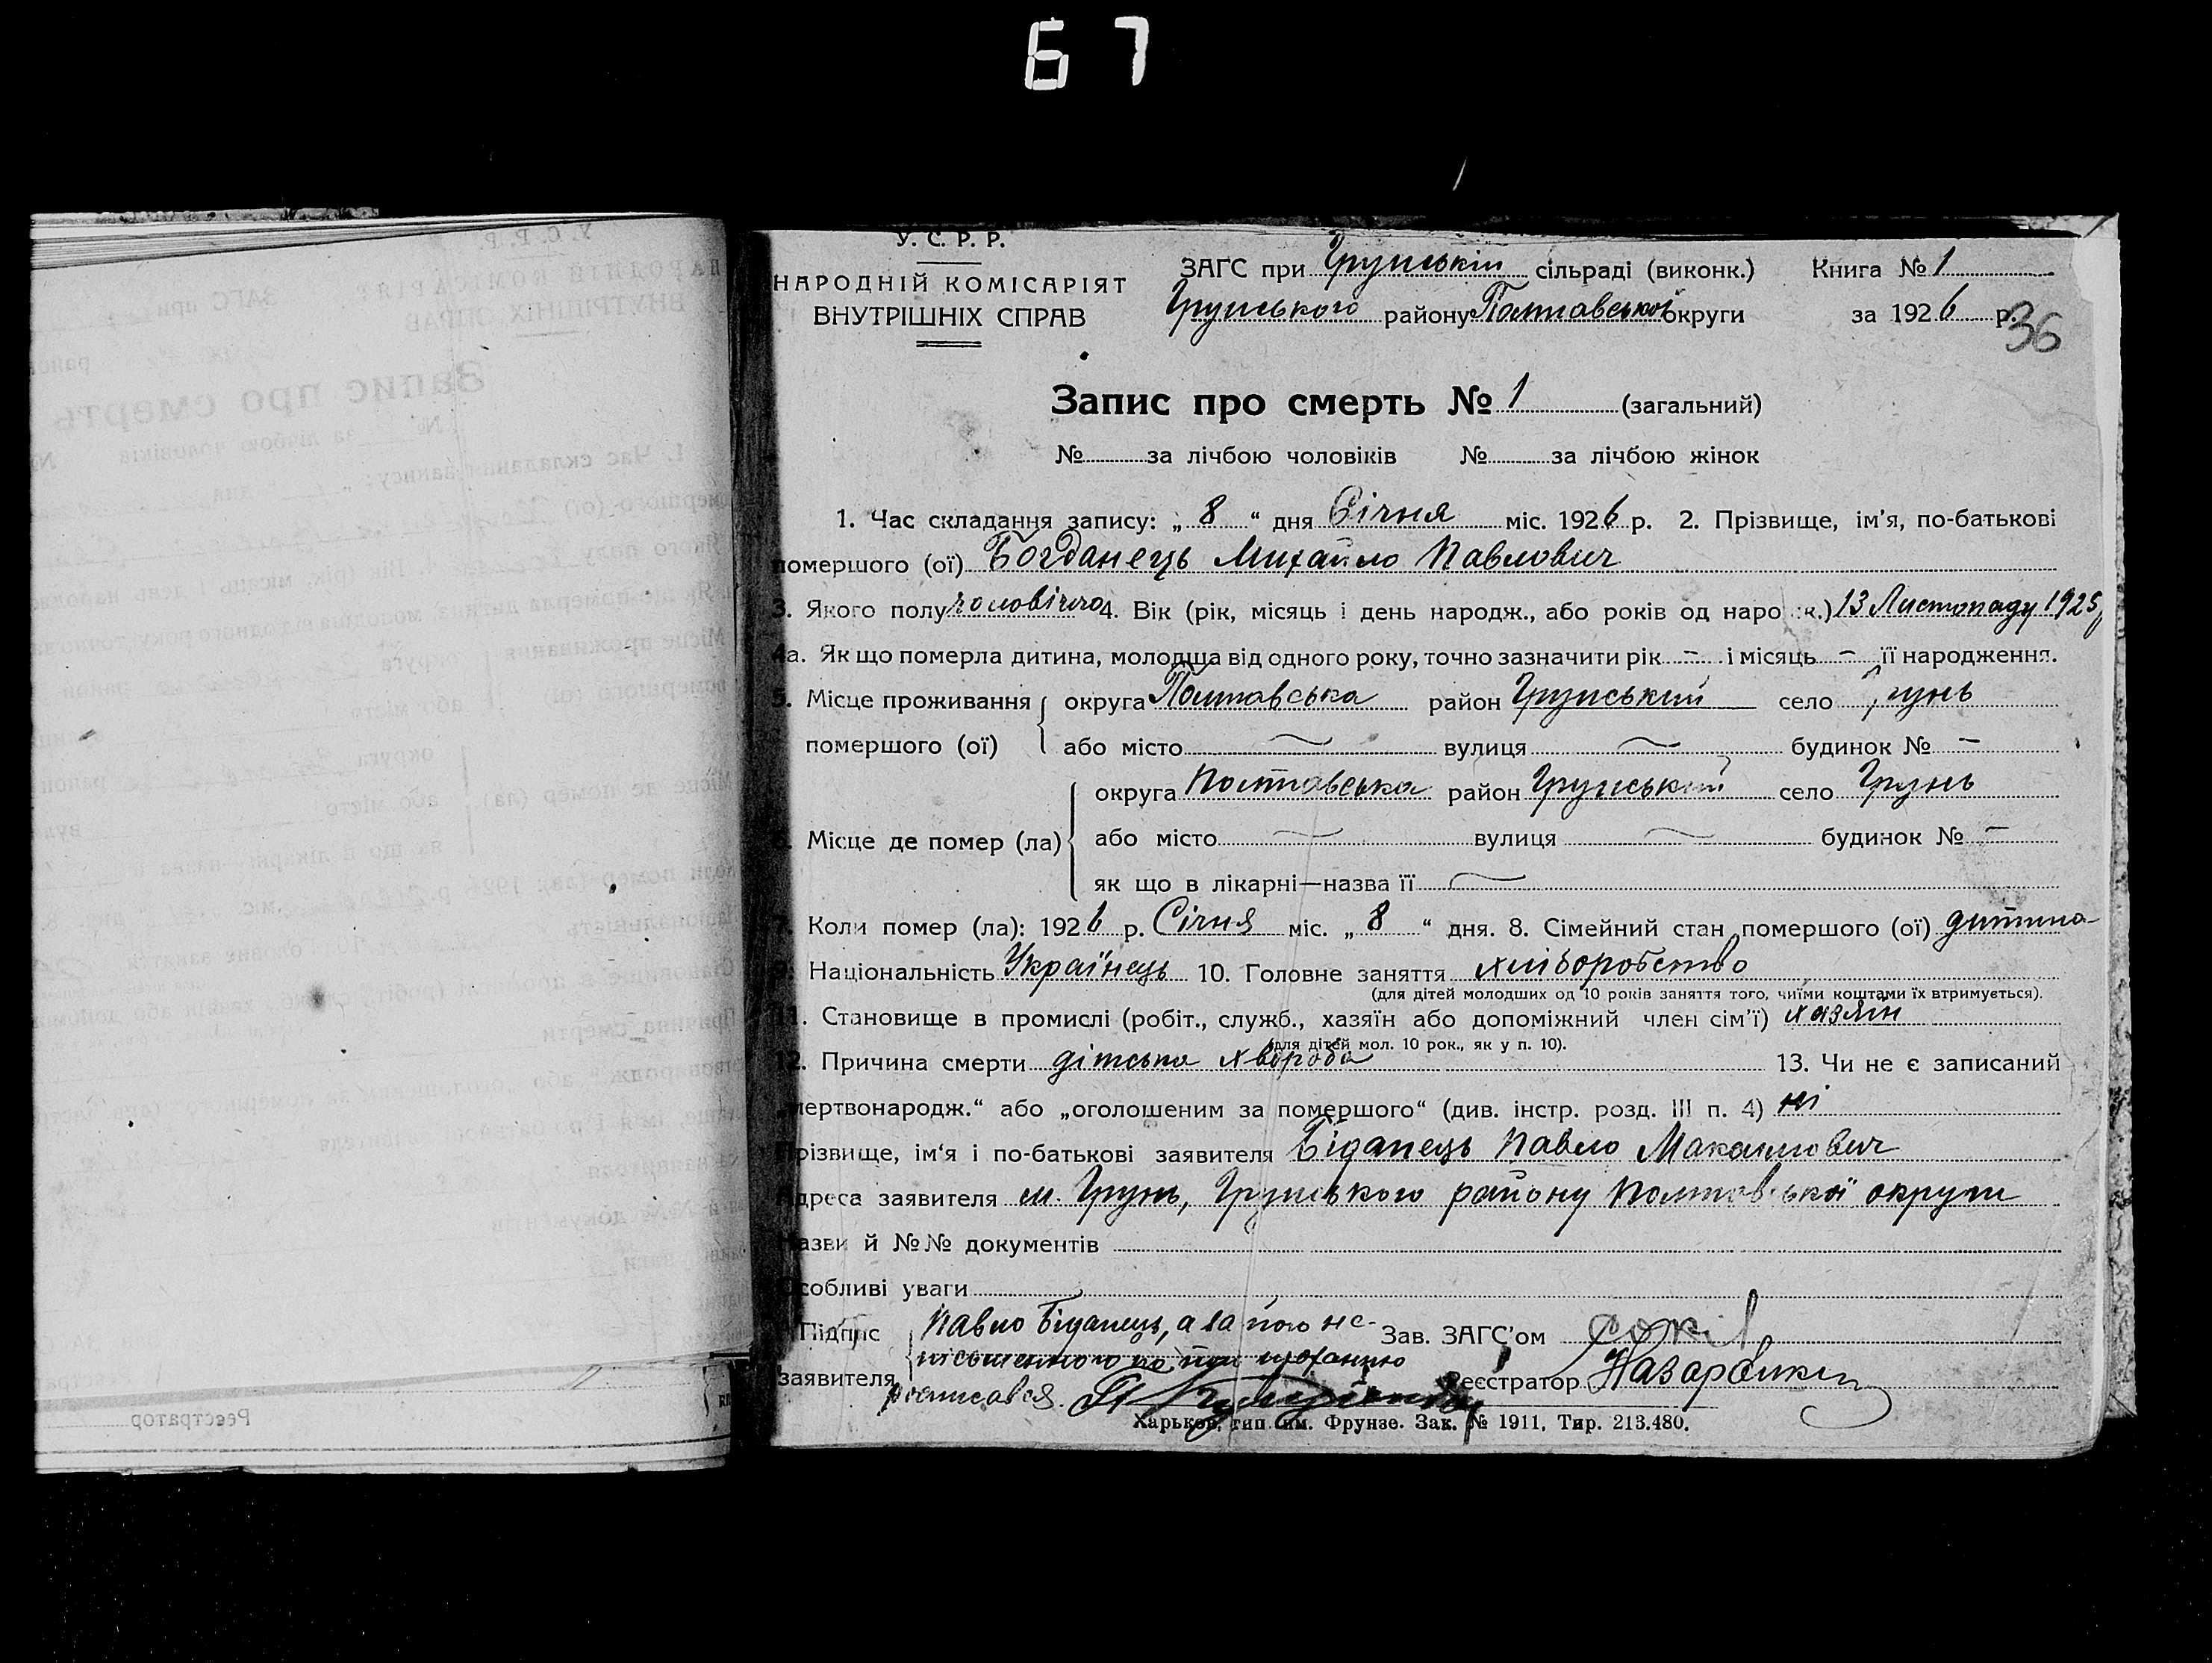 67
У. С. Р. Р.
НАРОДНІЙ КОМІСАРІЯТ
ВНУТРІШНІХ СПРАВ
ЗАГС при Грунській сільраді (виконк.) Книга № 1
Грунського району Полтавської округи за 1926 р.
36
Запис про смерть № 1 (загальний)
№ за лічбою чоловіків № за лічбою жінок
1. Час складання запису: „ 8 “ дня Січня міс. 1926 р. 2. Прізвище, ім’я, по-батькові
помершого (ої) Богданець Михайло Павлович
3. Якого полу чоловічого 4. Вік (рік, місяць і день народж., або років од народж.) 13 Листопаду 1925р
4а. Як що померла дитина, молодща від одного року, точно зазначити рік – і місяць – її народження.
5. Місце проживання округа Полтавська район Грунський село Грунь
помершого (ої) або місто вулиця будинок № –
округа Полтавська район Грунський село Грунь
6. Місце де помер (ла) або місто вулиця будинок № –
як що в лікарні—назва її
7. Коли помер (ла): 1926 р. Січня міс. „ 8 “ дня. 8. Сімейний стан помершого (ої) дитина
9. Національність Українець 10. Головне заняття хліборобство
(для дітей молодших од 10 років заняття того, чиїми коштами їх втримується).
11. Становище в промислі (робіт., служб., хазяїн або допоміжний член сім’ї) хазяїн
(для дітей мол. 10 рок., як у п. 10).
12. Причина смерти дітська хвороба 13. Чи не є записаний
„мертвонародж.“ або „оголошеним за помершого“ (див. інстр. розд. III п. 4) ні
Прізвище, ім‘я і по-батькові заявителя Біданець Павло Максимович
Адреса заявителя м. Грунь, Грунського району Полтавської округи
Назви й №№ документів
Особливі уваги
Підпис Павло Біданець, а за його не- Зав. ЗАГС’ом
письменного по його проханню
заявителя росписався. Реєстратор
Харьков, тип. им. Фрунзе. Зак. № 1911, Тир. 213.480.
Реєстратор